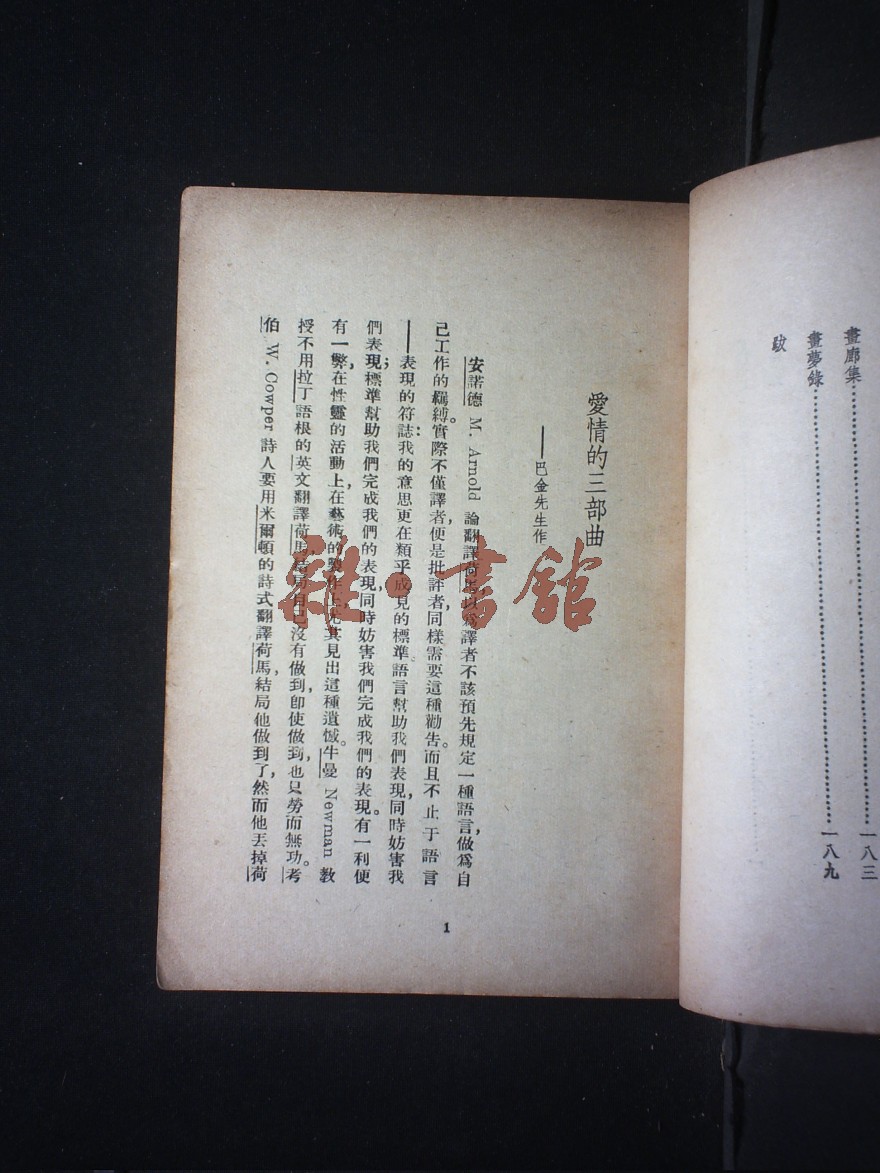 畫廊集⋯⋯⋯⋯⋯⋯⋯⋯一八三
畫夢錄⋯⋯⋯⋯⋯⋯⋯⋯一八九
跋
愛情的三部曲
——巴金先生作
安諾德 M. Arnold 論翻譯荷馬,以爲譯者不該預先規定一種語言,做爲自
己工作的羈縛。實際不僅譯者,便是批評者,同樣需要這種勸告。而且不止于語言
——表現的符誌:我的意思更在類乎成見的標準。語言幫助我們表現,同時妨害我
們表現;標準幫助我們完成我們的表現,同時妨害我們完成我們的表現。有一利便
有一弊,在性靈的活動上,在藝術的製作上,尤其見出這種遺憾。牛曼 Newman 教
授不用拉丁語根的英文翻譯荷馬,結局自己沒有做到,卽使做到,也只勞而無功。考
伯 W. Cowper 詩人要用米爾頓的詩式翻譯荷馬,結局他做到了,然而他丟掉荷
1
雜·書館